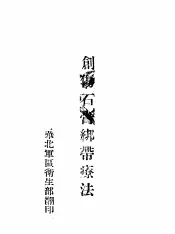 創傷石膏綳帶療法
華北軍區衛生部翻印